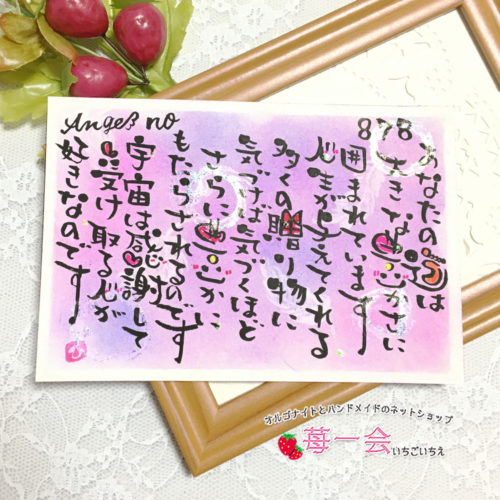 Angel no
878
あなたの道は
大きな豊かさに
囲まれています
人生が与えてくれる
多くの贈り物に
気づけば気づくほど
さらに豊かに
もたらされるのです
宇宙は感謝して
受け取る心が
好きなのです
オルゴナイトとハンドメイドのネットショップ
苺一会いちごいちえ